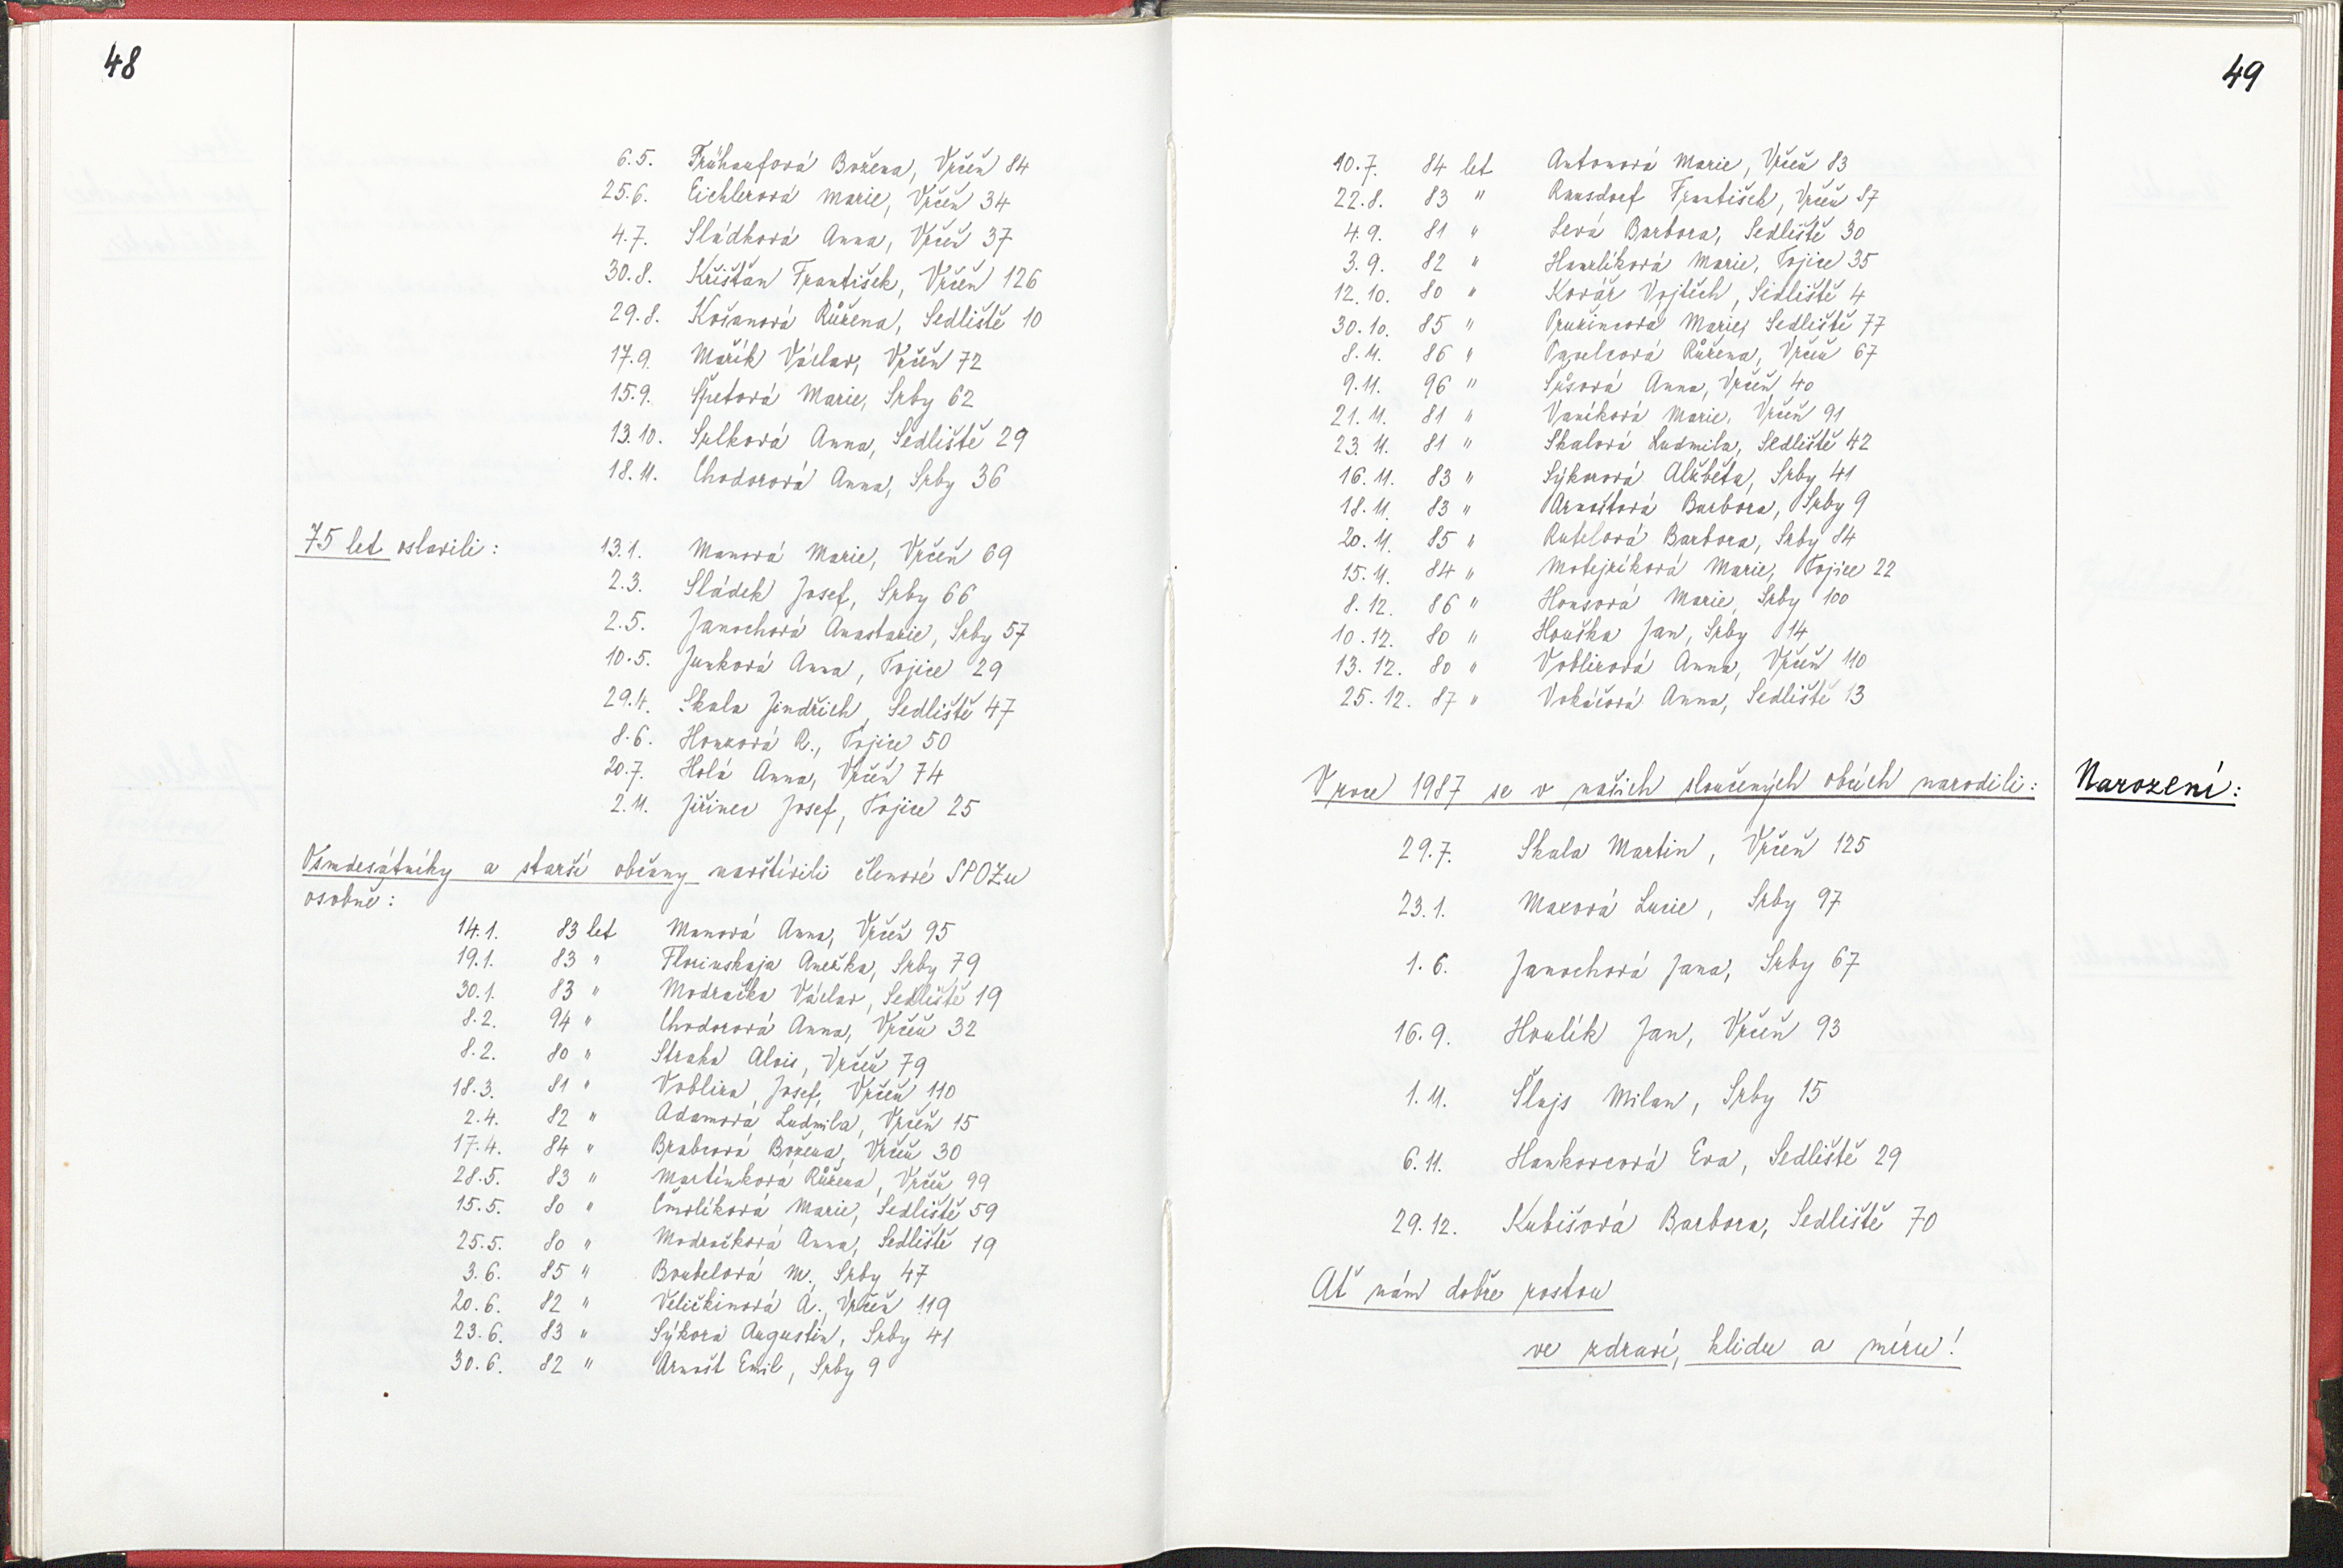 48
6.5. Frühaufová Božena, Vrčeň 84
25.6. Eichlerová Marie, Vrčeň 34
4.7. Sládková Anna, Vrčeň 37
30.8. Křišťan František, Vrčeň 126
29.8. Košanová Růžena, Sedliště 10
17.9. Mařík Václav, Vrčeň 72
15.9. Špetová Marie, Srby 62
13.10. Sulková Anna, Sedliště 29
18.11. Chodorová Anna, Srby 36
75 let oslavili: 13.1. Manová Marie, Vrčeň 69
2.3. Sládek Josef, Srby 66
2.5. Janochová Anastazie, Srby 57
10.5. Junková Anna, Tojice 29
29.4. Skala Jindřich, Sedliště 47
8.6. Honzová R., Tojice 50
20.7. Holá Anna, Vrčeň 74
2.11. Jiřinec Josef, Tojice 25
Osmdesátníky a starší občany navštívili členové SPOZu
osobně:
14.1. 83 let Manová Anna, Vrčeň 95
19.1. 83 " Florinskaja Anežka, Srby 79
30.1. 83 " Modračka Václav, Sedliště 19
8.2. 94 " Chodorová Anna, Vrčeň 32
8.2. 80 " Straka Alois, Vrčeň 79
18.3. 81 " Vobliza, Josef, Vrčeň 110
2.4. 82 " Adamová Ludmila, Vrčeň 15
17.4. 84 " Brabcová Božena, Vrčeň 30
28.5. 83 " Martínková Růžena, Vrčeň 99
15.5. 80 " Čmolíková Marie, Sedliště 59
25.5. 80 " Modračková Anna, Sedliště 19
3.6. 85 " Boubelová M., Srby 47
20.6. 82 " Veličkinová A., Vrčeň 119
23.6. 83 " Sýkora Augustin, Srby 41
30.6. 82 " Arnošt Emil, Srby 9
49
10.7. 84 let Antonová Marie, Vrčeň 83
22.8. 83 " Rausdorf František, Vrčeň 87
4.9. 81 " Levá Barbora, Sedliště 30
3.9. 82 " Havlíková Marie, Tojice 35
12.10. 80 " Kovář Vojtěch, Sedliště 4
30.10. 85 " Pružincová Marie, Sedliště 77
8.11. 86 " Pavelcová Růžena, Vrčeň 67
9.11. 96 " Sýsová Anna, Vrčeň 40
21.11. 81 " Vaníková Marie, Vrčeň 91
23.11. 81 " Skalová Ludmila, Sedliště 42
16.11. 83 " Sýkorová Alžběta, Srby 41
18.11. 83 " Arnoštová Barbora, Srby 9
20.11. 85 " Rubelová Barbora, Srby 84
15.11. 84 " Motejzíková Marie, Tojice 22
8.12. 86 " Honsová Marie, Srby 100
10.12. 80 " Houška Jan, Srby 14
13.12. 80 " Voblizová Anna, Vrčeň 110
25.12. 87 " Vokáčová Anna, Sedliště 13
V roce 1987 se v našich sloučených obcích narodili:
Narození:
29.7. Skala Martin, Vrčeň 125
23.1. Maxová Lucie, Srby 97
1.6. Janochová Jana, Srby 67
16.9. Hrulík Jan, Vrčeň 93
1.11. Šlajs Milan, Srby 15
6.11. Hankovcová Eva, Sedliště 29
29.12. Kubišová Barbora, Sedliště 70
Ať nám dobře rostou
ve zdraví, klidu a míru!